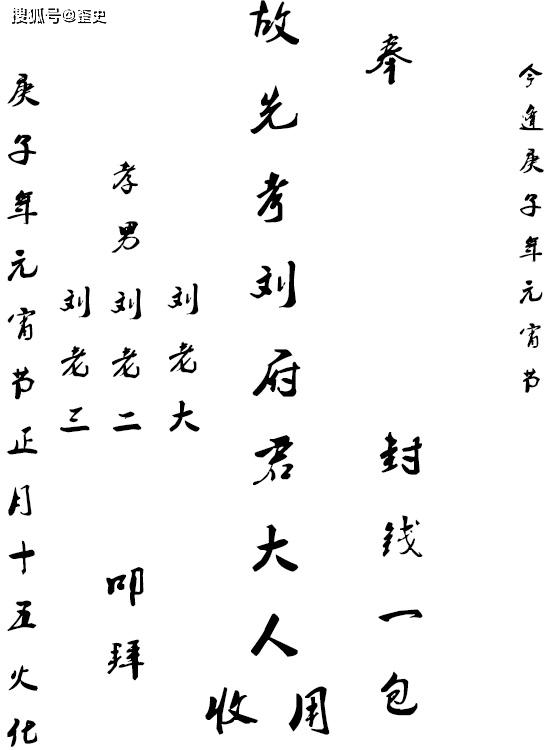 搜狐号@歪史
今逢庚子年元宵节
奉
封钱一包
故先考刘府君大人
收用
刘老大
孝男刘老二叩拜
刘老三
庚子年元宵节正月十五火化